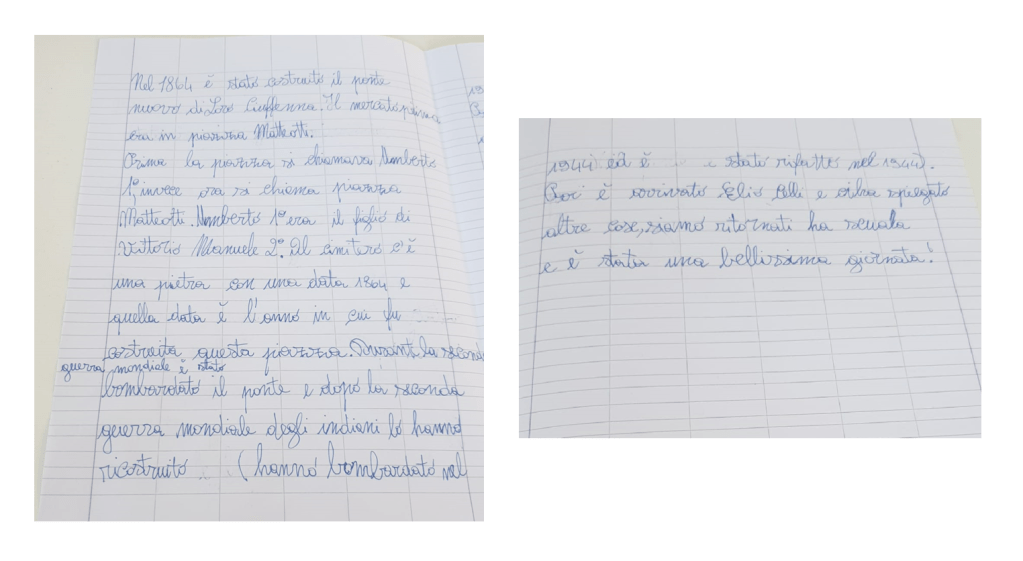 Nel 1864 è stato costruito il ponte
nuovo di Loro Ciuffenna. Il mercato prima
era in piazza Matteotti.
Prima la piazza si chiamava Umberto
1°, invece ora si chiama piazza
Matteotti. Umberto 1° era il figlio di
Vittorio Manuele 2°. Al cimitero c'è
una pietra con una data 1864 e
quella data è l'anno in cui fu
costruita questa piazza. Durant la seconda
guerra mondiale è stato
bombardato il ponte e dopo la seconda
guerra mondiale degli indiani lo hanno
ricostruito (hanno bombardato nel
1944) ed è stato rifatto nel 1944).
Poi è arrivato e ci ha spiegato
altre cose, siamo ritornati ha scuola
e è stata una bellissima giornata!